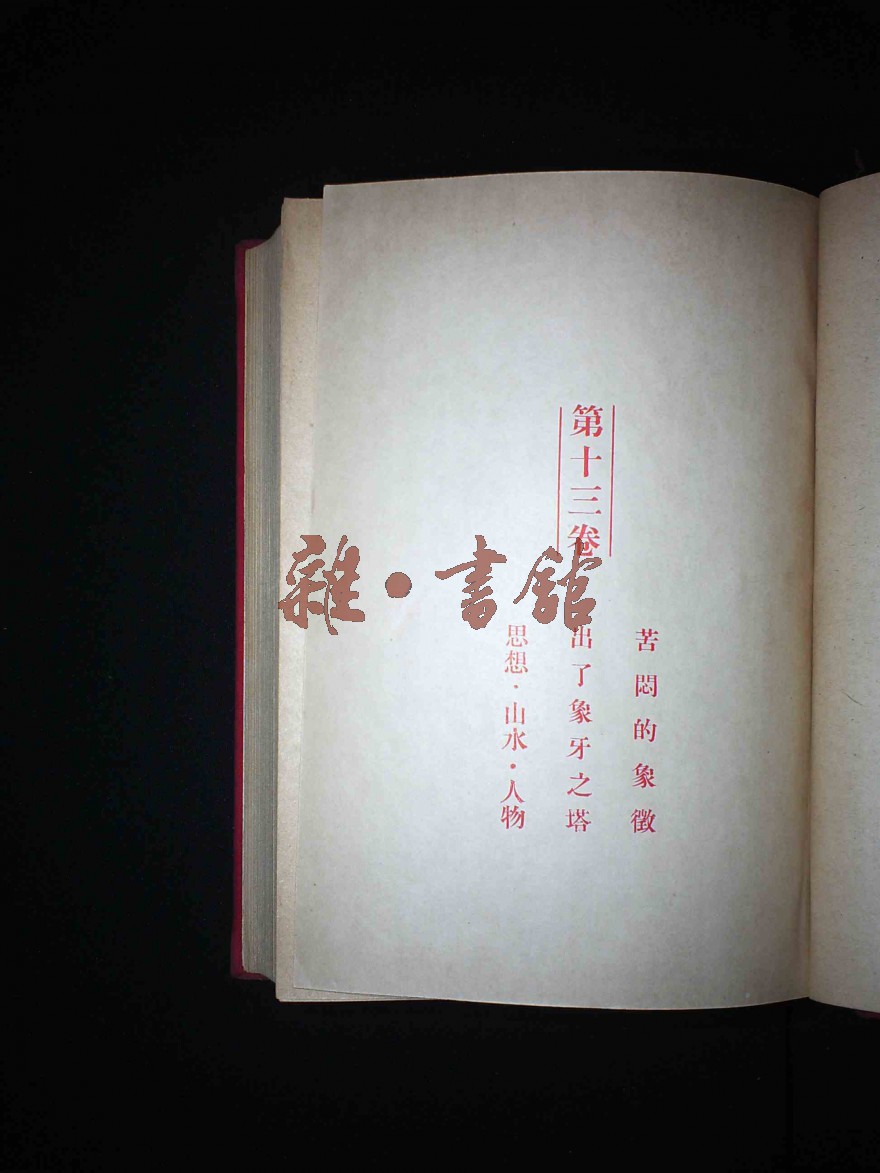 第十三卷
苦悶的象徵
出了象牙之塔
思想·山水·人物
雜·書館